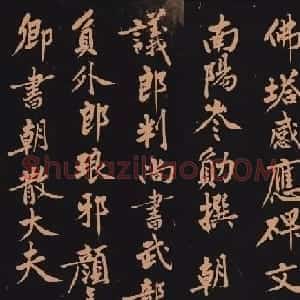 佛塔感應碑文
南陽岑勛撰 朝
議郎判尚書武部
員外郎琅邪顏
卿書朝散大夫